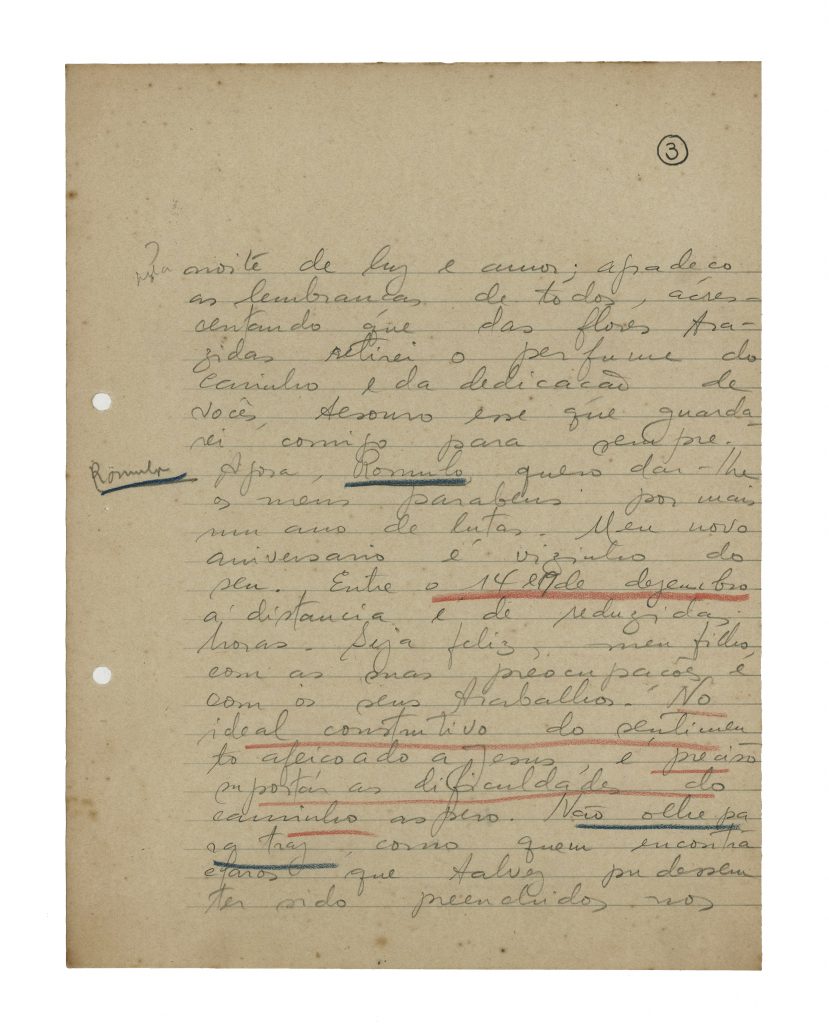 3
nesta
noite de luz e amor; agradeco
as lembrancas de todos, acres-
centando que das flores tra-
zidas retirei o perfume do
carinho e da dedicacão de
vocês, tesouro esse que guarda-
rei comigo para sempre.
Rômulo
Agora, Romulo quero dar-lhe
os meus parabens por mais
um ano de lutas. Meu novo
aniversario é vizinho do
seu. Entre o 14 e 19 de dezembro
a distancia é de reduzidas
horas. Seja feliz, meu filho,
com as suas preocupações e
com os seus trabalhos. No
ideal construtivo do sentimen
to afeicoado a Jesus, é preciso
suportar as dificuldades do
caminho aspero. Não olhe pa
ra traz como quem encontra
claros que talvez pudessem
ter sido preenchidos nos